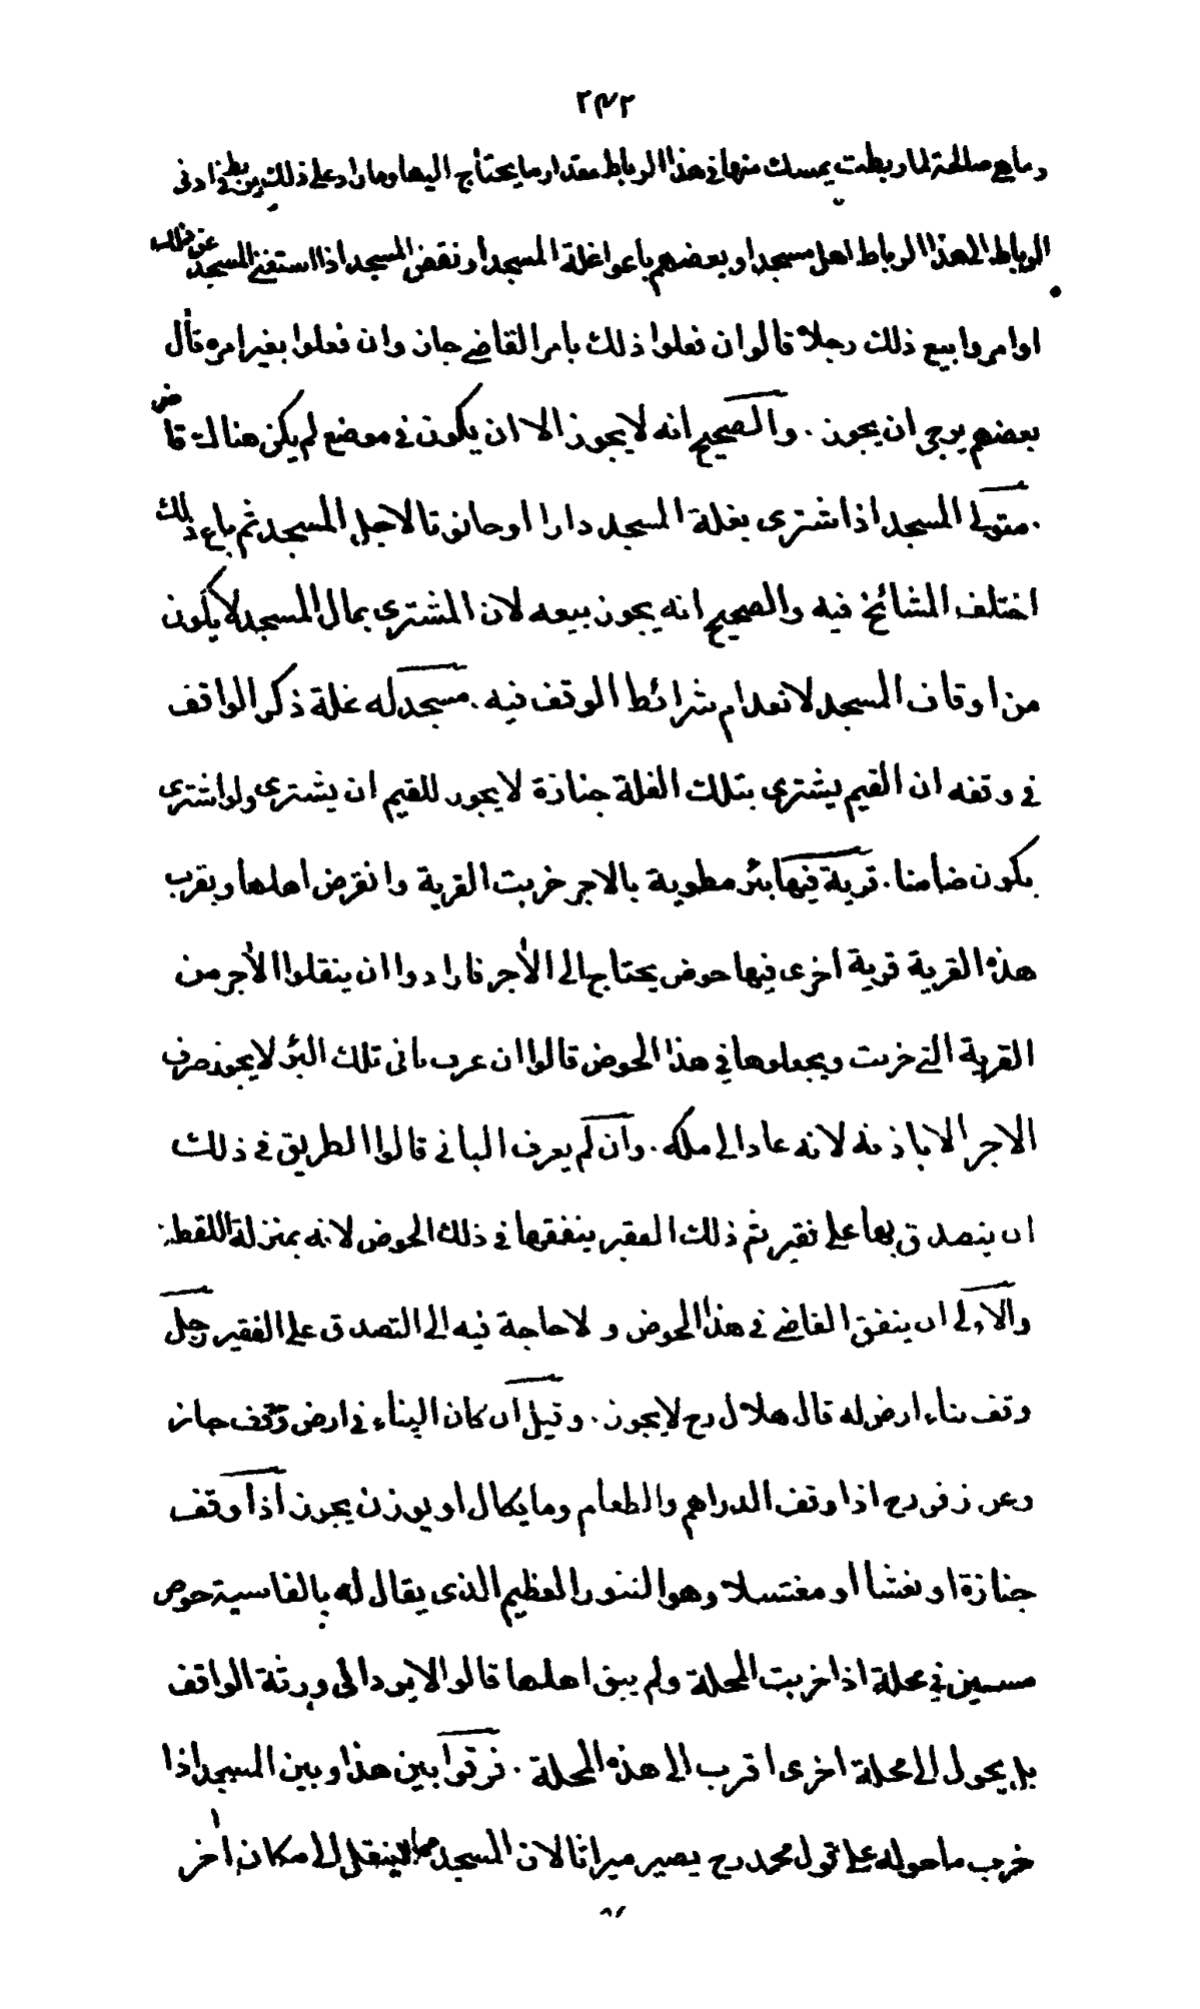 ٢٤٢
وماهي صالحة لما ربطت يمسك منها في هذا الرباط مقدار ما يحتاج اليها وما زاد على ذلك يربط في ادنى
الرباط الى هذا الرباط اهل مسجد او بعضهم باعوا غلة المسجد او نقض المسجد اذا استغنى المسجد عن ذلك
او امروا ببيع ذلك رجلا قالوا ان فعلوا ذلك بامر القاضي جاز وان فعلوا بغير امره قال
بعضهم يرجى ان يجوز . والصحيح انه لا يجوز الا ان يكون في موضع لم يكن هناك قاض
. متولى المسجد اذا اشترى بغلة المسجد دارا او حانوتا لاجل المسجد ثم باع ذلك
اختلف المشائخ فيه والصحيح انه يجوز بيعه لان المشترى بمال المسجد لا يكون
من اوقاف المسجد لانعدام شرائط الوقف فيه . مسجد له غلة ذكر الواقف
في وقفه ان القيم يشترى بتلك الغلة جنازة لا يجوز للقيم ان يشترى ولو اشترى
يكون ضامنا . قرية فيها بئر مطوية بالاجر خربت القرية وانقرض اهلها وبقرب
هذه القرية قرية اخرى فيها حوض يحتاج الى الآجر فارادوا ان ينقلوا الآجر من
القرية التى خربت ويجعلوها في هذا الحوض قالوا ان عرف بانى تلك البئر لا يجوز صرف
الاجر الا باذنه لانه عاد الى ملكه . وان لم يعرف البانى قالوا الطريق في ذلك
ان يتصدق بها على فقير ثم ذلك الفقير ينفقها في ذلك الحوض لانه بمنزلة اللقطة
والاولى ان ينفق القاضي في هذا الحوض ولا حاجة فيه الى التصدق على الفقير رجل
وقف بناء ارض له قال هلال رح لا يجوز . وقيل ان كان البناء في ارض وقف جاز
وعن زفر رح اذا وقف الدراهم والطعام وما يكال او يوزن يجوز اذا وقف
جنازة او نعشا او مغتسلا وهو التنور العظيم الذى يقال له بالفاسية حوض
مسين في محلة اذا خربت المحلة ولم يبق اهلها قالوا لا يرد الى ورثة الواقف
بل يحول الى محلة اخرى اقرب الى هذه المحلة . فرقوا بين هذا وبين المسجد اذا
خرب ما حوله على قول محمد رح يصير ميراثا لان المسجد مما لا ينقل الى مكان آخر